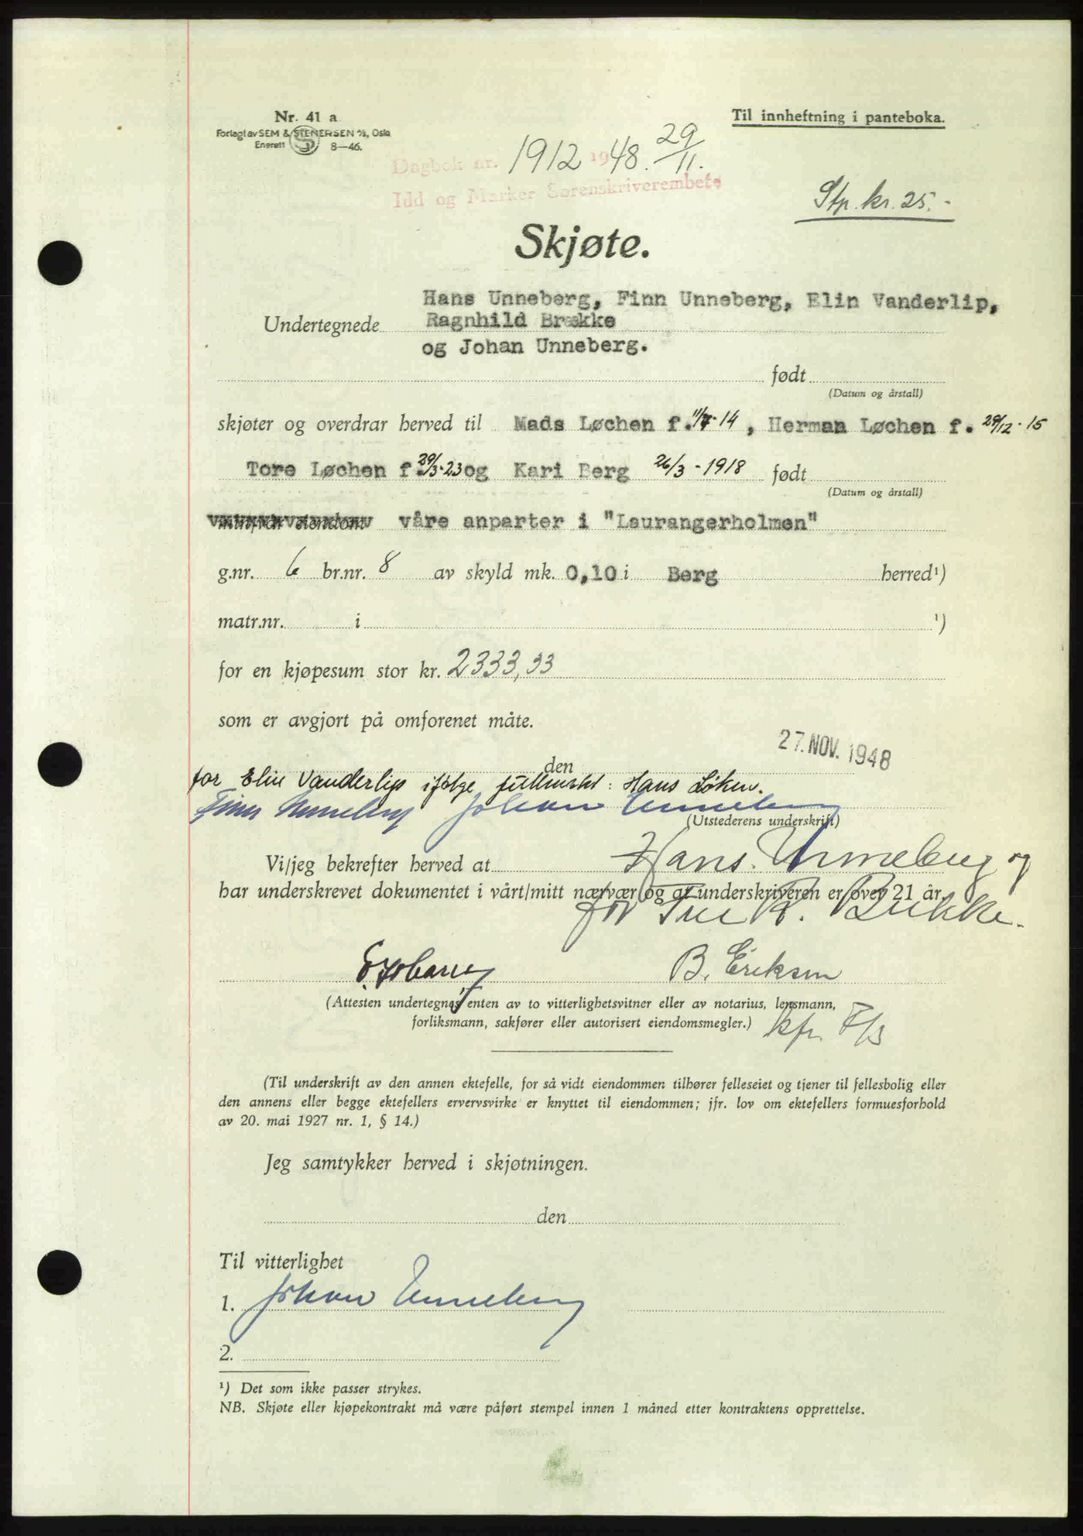 Nr. 41 a
Forlagt av SEM & STENERSEN A/S, Oslo
Enerett 8—46.
Til innheftning i panteboka.
Dagbok nr. 1912 1948. 29/11.
Idd og Marker Sorenskriverembete
Stp. kr. 25.-
Skjøte.
Hans Unneberg, Finn Unneberg, Elin Vanderlip,
Undertegnede Ragnhild Brække
og Johan Unneberg.
født
(Datum og årstall)
skjøter og overdrar herved til Mads Løchen f. 14, Herman Løchen f. 29/12-15
Tore Løchen f. 29/3-23 og Kari Berg 26/3-1918 født
(Datum og årstall)
våre anparter i "Laurangerholmen"
g.nr. 6 br.nr. 8 av skyld mk. 0,10 i Berg herred¹)
matr.nr. i ¹)
for en kjøpesum stor kr. 2333,33
som er avgjort på omforenet måte.
den 27. NOV. 1948
for Elin Vanderlip ifølge fullmakt: Hans Løken.
Finn Unneberg Johan Unneberg
(Utstederens underskrift)
Vi/jeg bekrefter herved at Hans Unneberg og
har underskrevet dokumentet i vårt/mitt nærvær og at underskriveren er over 21 år.
for R. Brække.
B. Eriksen
(Attesten undertegnes enten av to vitterlighetsvitner eller av notarius, lensmann,
forliksmann, sakfører eller autorisert eiendomsmegler.)
(Til underskrift av den annen ektefelle, for så vidt eiendommen tilhører felleseiet og tjener til fellesbolig eller
den annens eller begge ektefellers ervervsvirke er knyttet til eiendommen; jfr. lov om ektefellers formuesforhold
av 20. mai 1927 nr. 1, § 14.)
Jeg samtykker herved i skjøtningen.
den
Til vitterlighet
1. Johan Unneberg
2.
¹) Det som ikke passer strykes.
NB. Skjøte eller kjøpekontrakt må være påført stempel innen 1 måned etter kontraktens opprettelse.